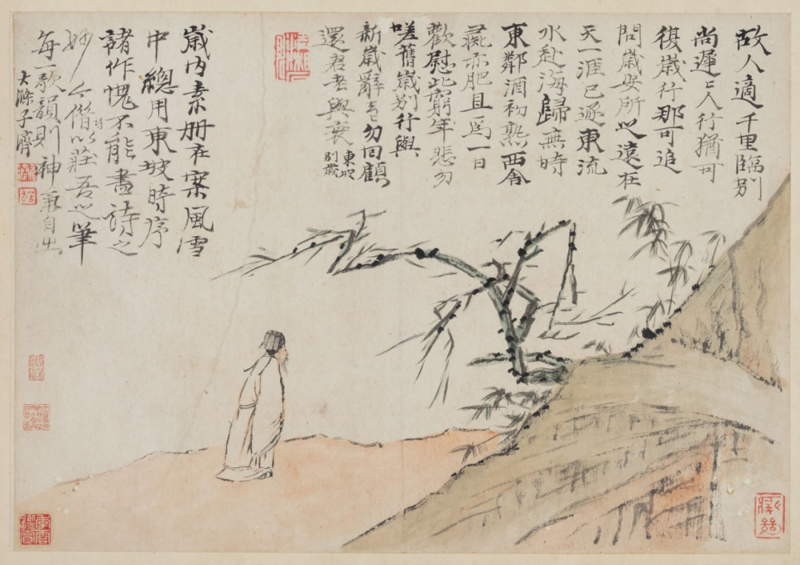 故人適千里臨別
尚遲〻人行猶可
復歲行那可追
問歲安所之遠在
天一涯已逐東流
水赴海歸無時
東鄰酒初熟西舍
彘亦肥且爲一日
歡慰此窮年悲勿
嗟舊歲別行與
新歲辭去〻勿回顧
還君老與衰
東坡
別歲
歲內素冊在案風雪
中總用東坡時序
諸作愧不能盡詩之
妙今偕以莊吾之筆
每一歌韻則神自
大滌子濟